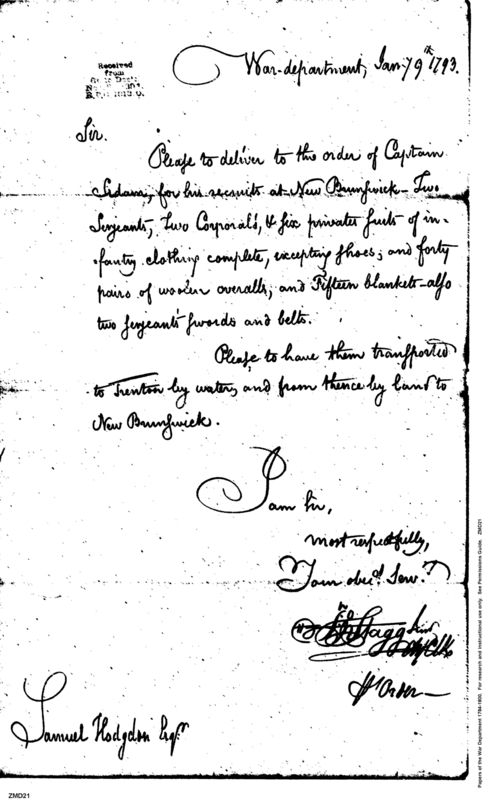 Received
from
War-department, Jany 9th 1793.
Sir.
Please to deliver to the order of Captain
Sedam, for his recruits at New Brunswick - Two
Serjeants, Two Corporals, & six privates suits of in-
fantry clothing complete, excepting shoes; and forty
pairs of woolen overalls, and Fifteen blankets - also
two serjeants swords and belts.
Please to have them transported
to Trenton by water, and from thence by land to
New Brunswick.
I am Sir,
most respectfully,
Your obedt. Servt.
Jno Stagg Junr
Ch Clk
Samuel Hodgdon Esqr.
ZMD21
Papers of the War Department 1784-1800. For research and instructional use only. See Permissions Guide. ZMD21